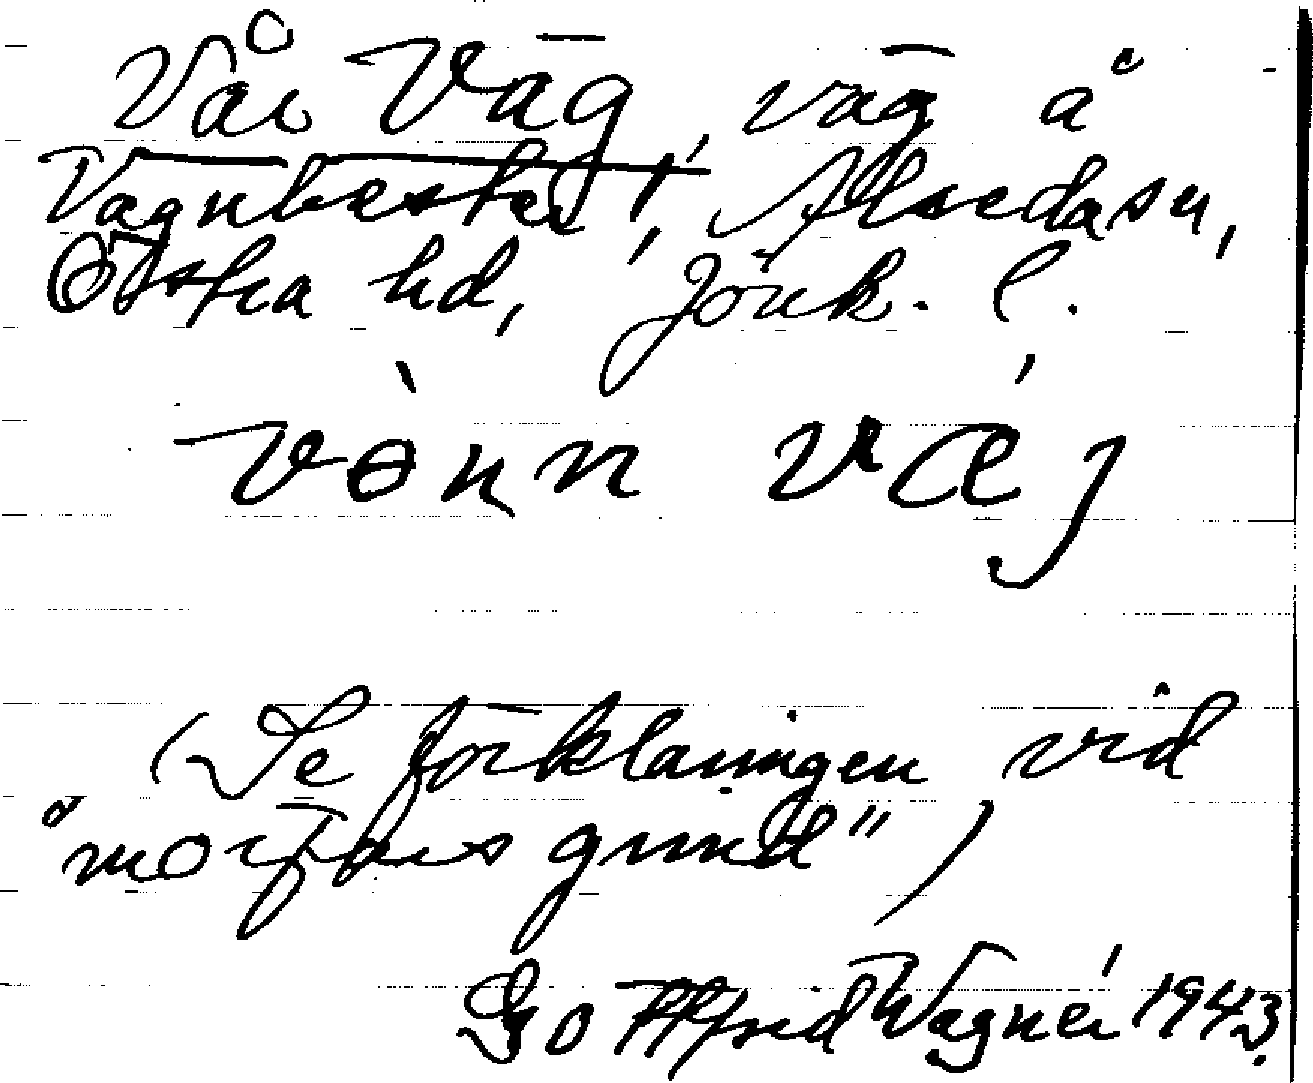 Vår Väg, väg å
Vagnhester, Alseda sn,
Östra hd, Jönk. l.
vònn vǽj
(Se förklaringen vid
"morfars grind")
Gottfrid Wagnér 1943.